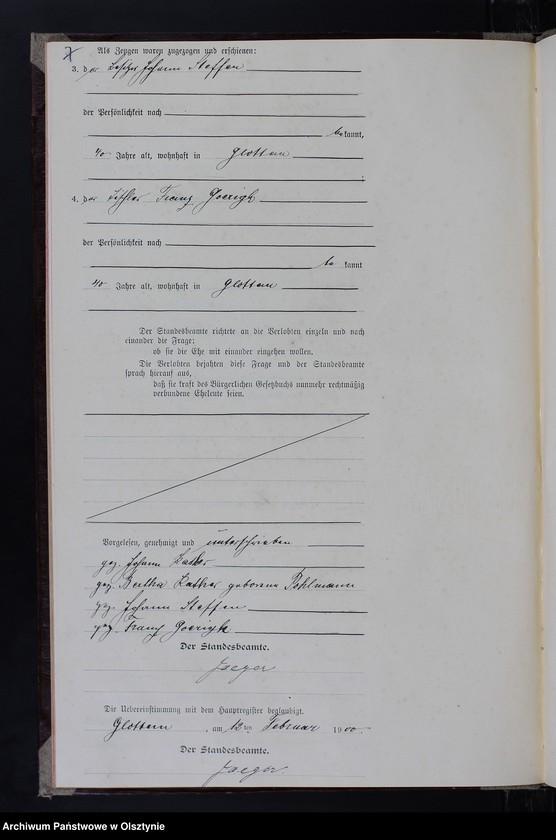 Als Zeugen waren zugezogen und erschienen:
3. der Besitzer Johann Steffen
der Persönlichkeit nach
bekannt,
40 Jahre alt, wohnhaft in Glottau
4. der Tischler Franz Goerigk
der Persönlichkeit nach
be kannt
40 Jahre alt, wohnhaft in Glottau
Der Standesbeamte richtete an die Verlobten einzeln und nach
einander die Frage:
ob sie die Ehe mit einander eingehen wollen.
Die Verlobten bejahten diese Frage und der Standesbeamte
sprach hierauf aus,
daß sie kraft des Bürgerlichen Gesetzbuchs nunmehr rechtmäßig
verbundene Eheleute seien.
Vorgelesen, genehmigt und unterschrieben
gez. Johann
gez. Bertha geborene Pohlmann
gez. Johann Steffen
gez. Franz Goerigk
Der Standesbeamte.
Jaeger
Die Uebereinstimmung mit dem Hauptregister beglaubigt.
Glottau, am 12ten Februar 1900.
Der Standesbeamte.
Jaeger.
Archiwum Państwowe w Olsztynie